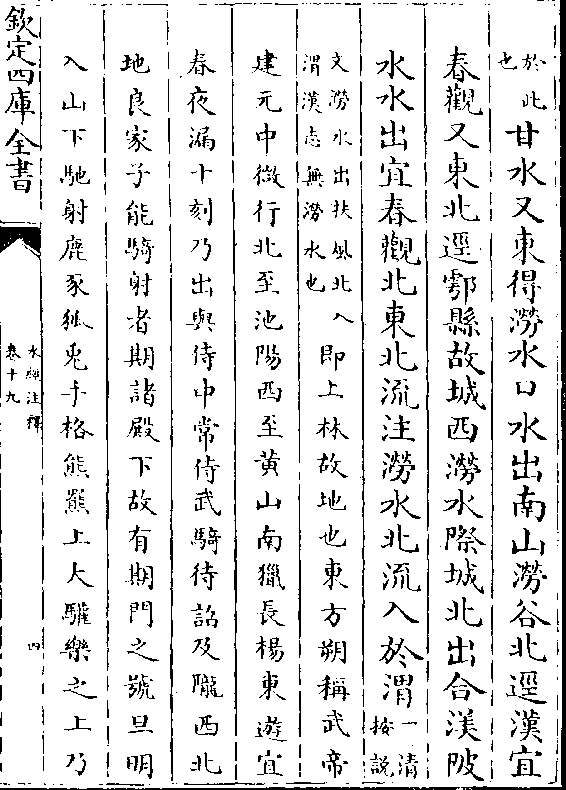 於此
也
甘水又東得澇水口水出南山澇谷北逕漢宜
春觀又東北逕鄠縣故城西澇水際城北出合渼陂
水水出宜春觀北東北流注澇水北流入於渭
一清
按説
文澇水出扶風北入
渭漢志無澇水也
即上林故地也東方朔稱武帝
建元中微行北至池陽西至黄山南獵長楊東遊宜
春夜漏十刻乃出與侍中常侍武騎待詔及隴西北
地良家子能騎射者期諸殿下故有期門之號旦明
入山下馳射鹿豕狐兎手格熊羆上大驩樂之上乃
欽定四庫全書
水經注釋
卷十九
四